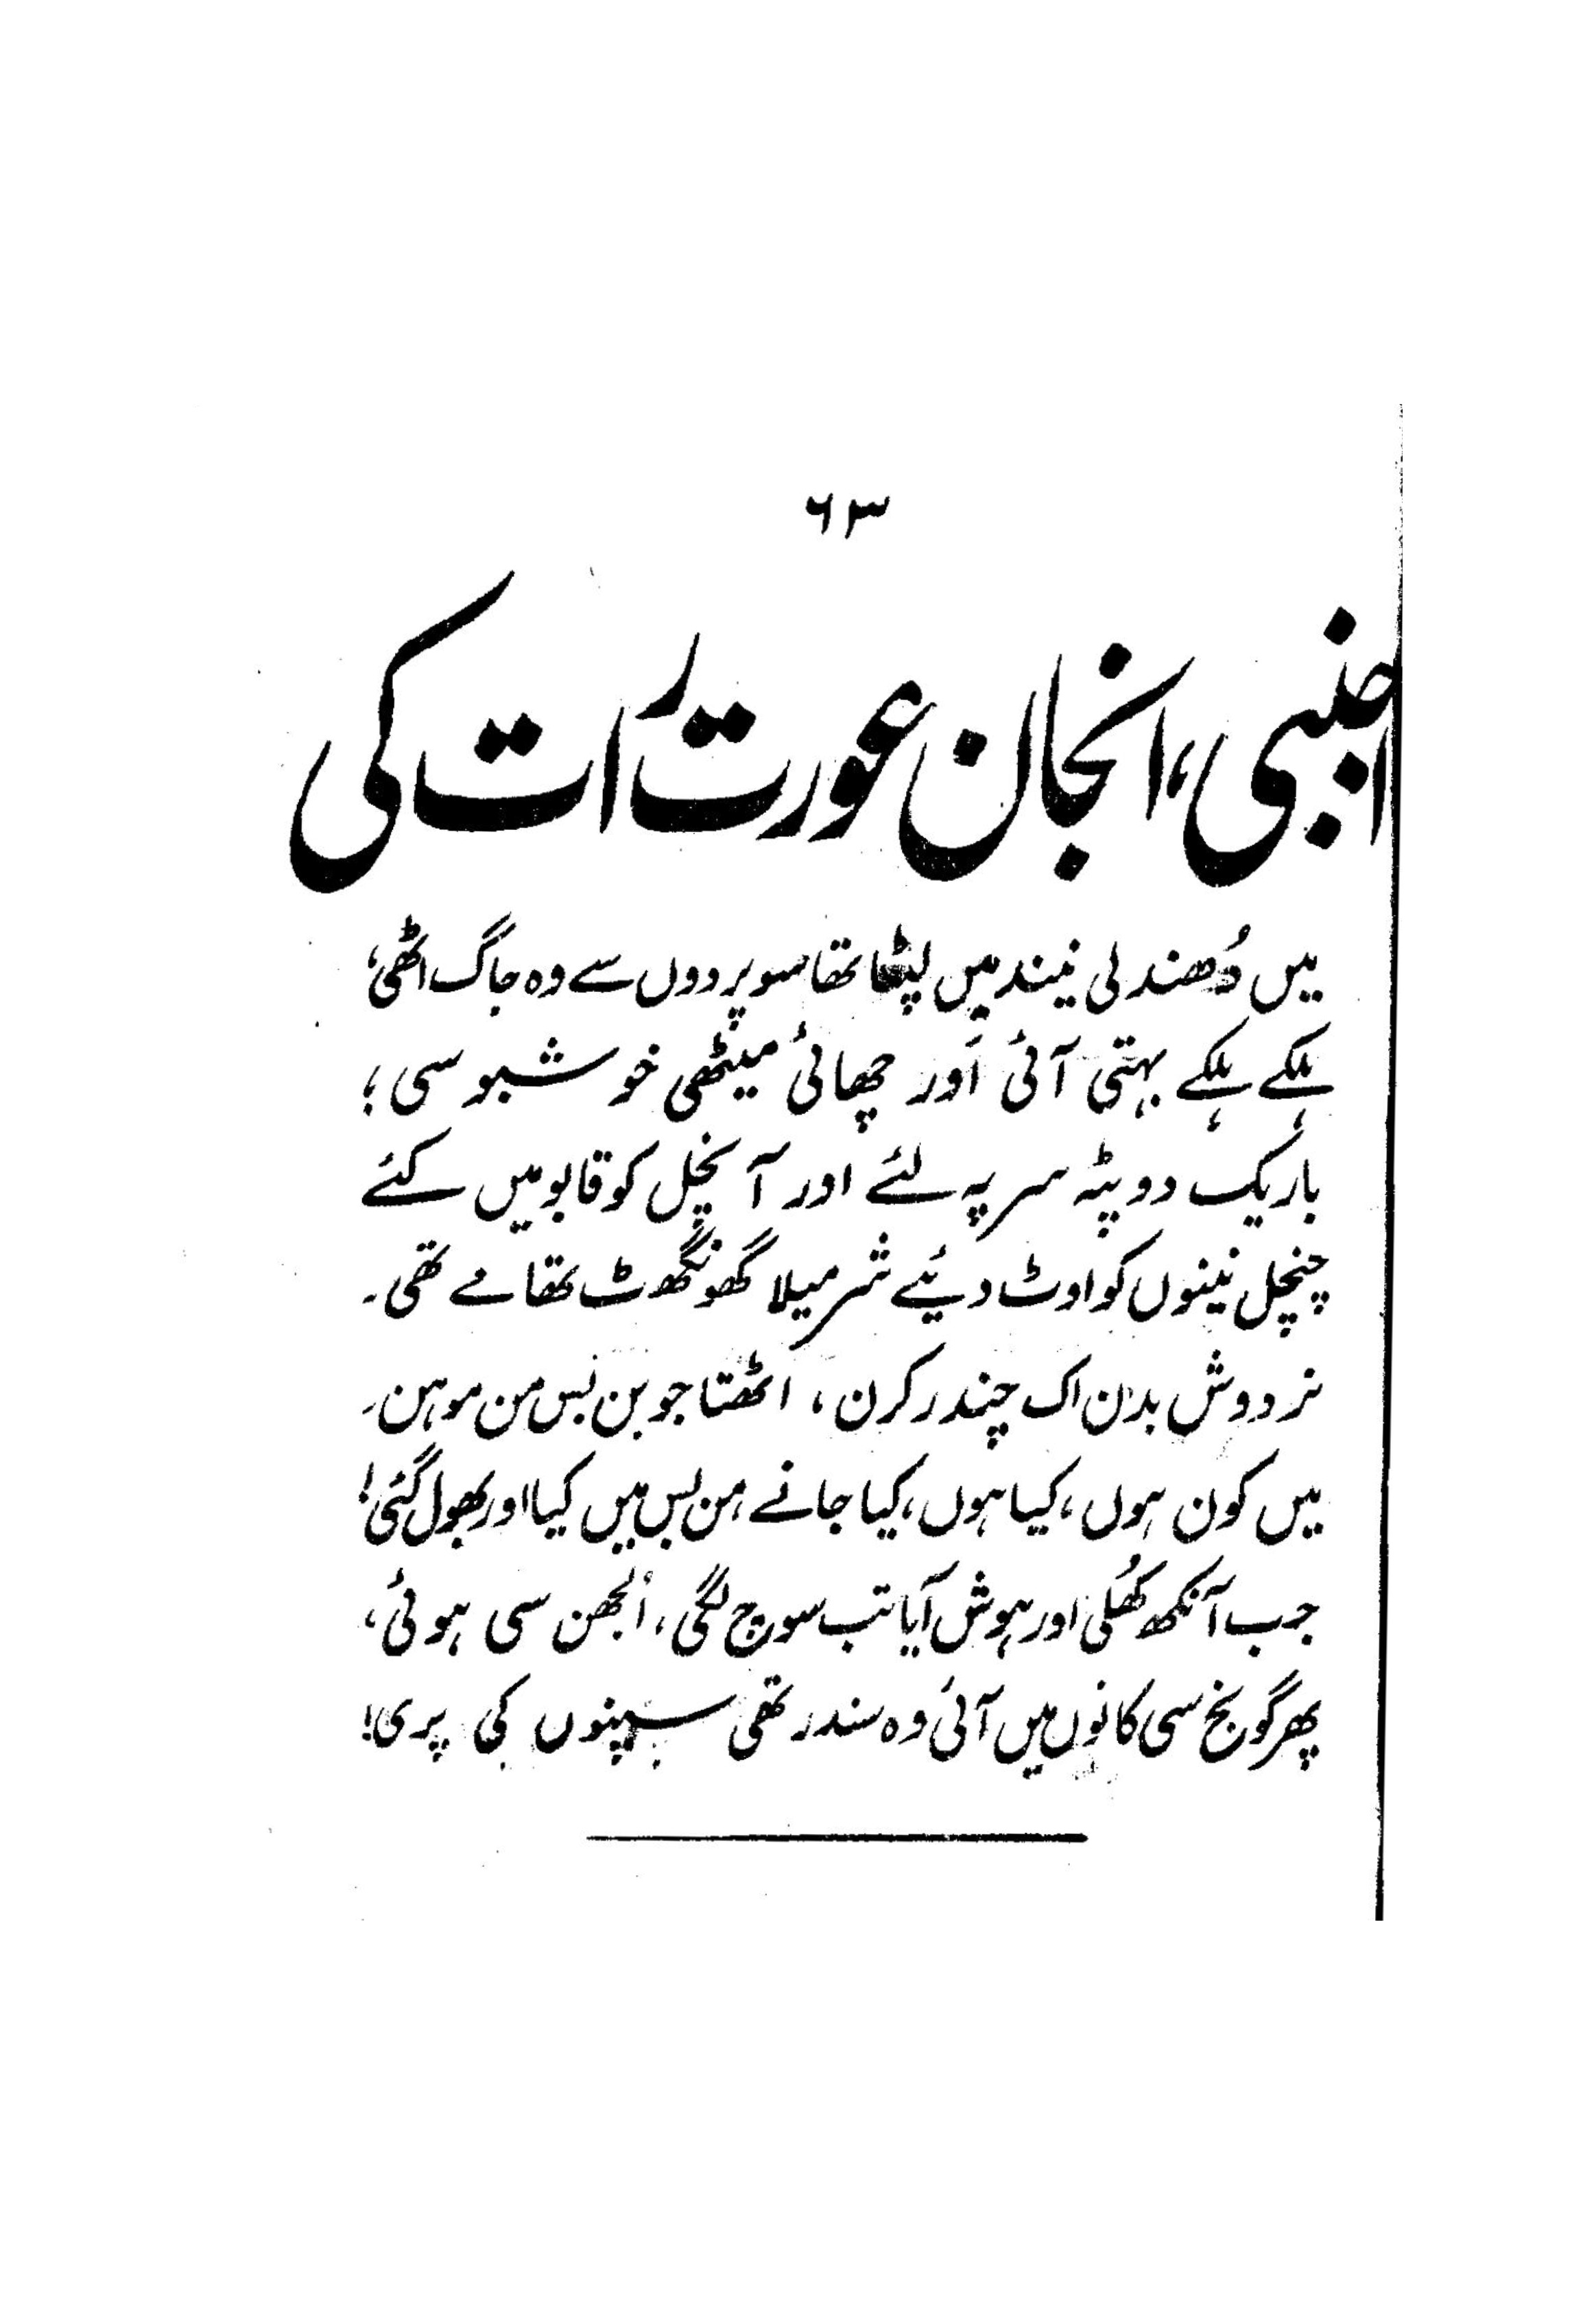 ۶۳
اجنبی، انجان عورت رات کی
میں دُھندلی نیند میں لپٹا تھا سو پردوں سے وہ جاگ اٹھی،
ہلکے ہلکے بہتی آئی اَور چھائی میٹھی خوشبو سی؛
باریک دوپٹہ سر پہ لئے اور آنچل کو قابو میں کئے
چنچل نینوں کو اوٹ دیئے شرمیلا گھونگھٹ تھامے تھی۔
نردوش بدن اک چندر کرن، اٹھتا جوبن بس من موہن،
میں کون ہوں، کیا ہوں، کیا جانے، من بس میں کیا اور بھول گئی!
جب آنکھ کھُلی اور ہوش آیا تب سوچ لگی، اُلجھن سی ہوئی،
پھر گونج سی کانوں میں آئی وہ سندر تھی سپنوں کی پری!